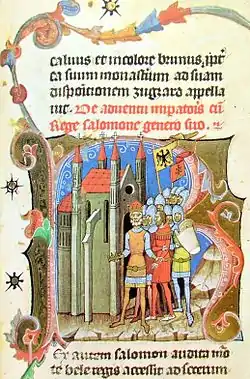 caluus et in colore brunus, ipt
ea suum monasterium ad suam
dispositionem zugzard appella
uit. De aduentu imperatoris cum
Rege salomone genero suo.
Ex autem salomon audita mo
te bele regis accessit ad scerum